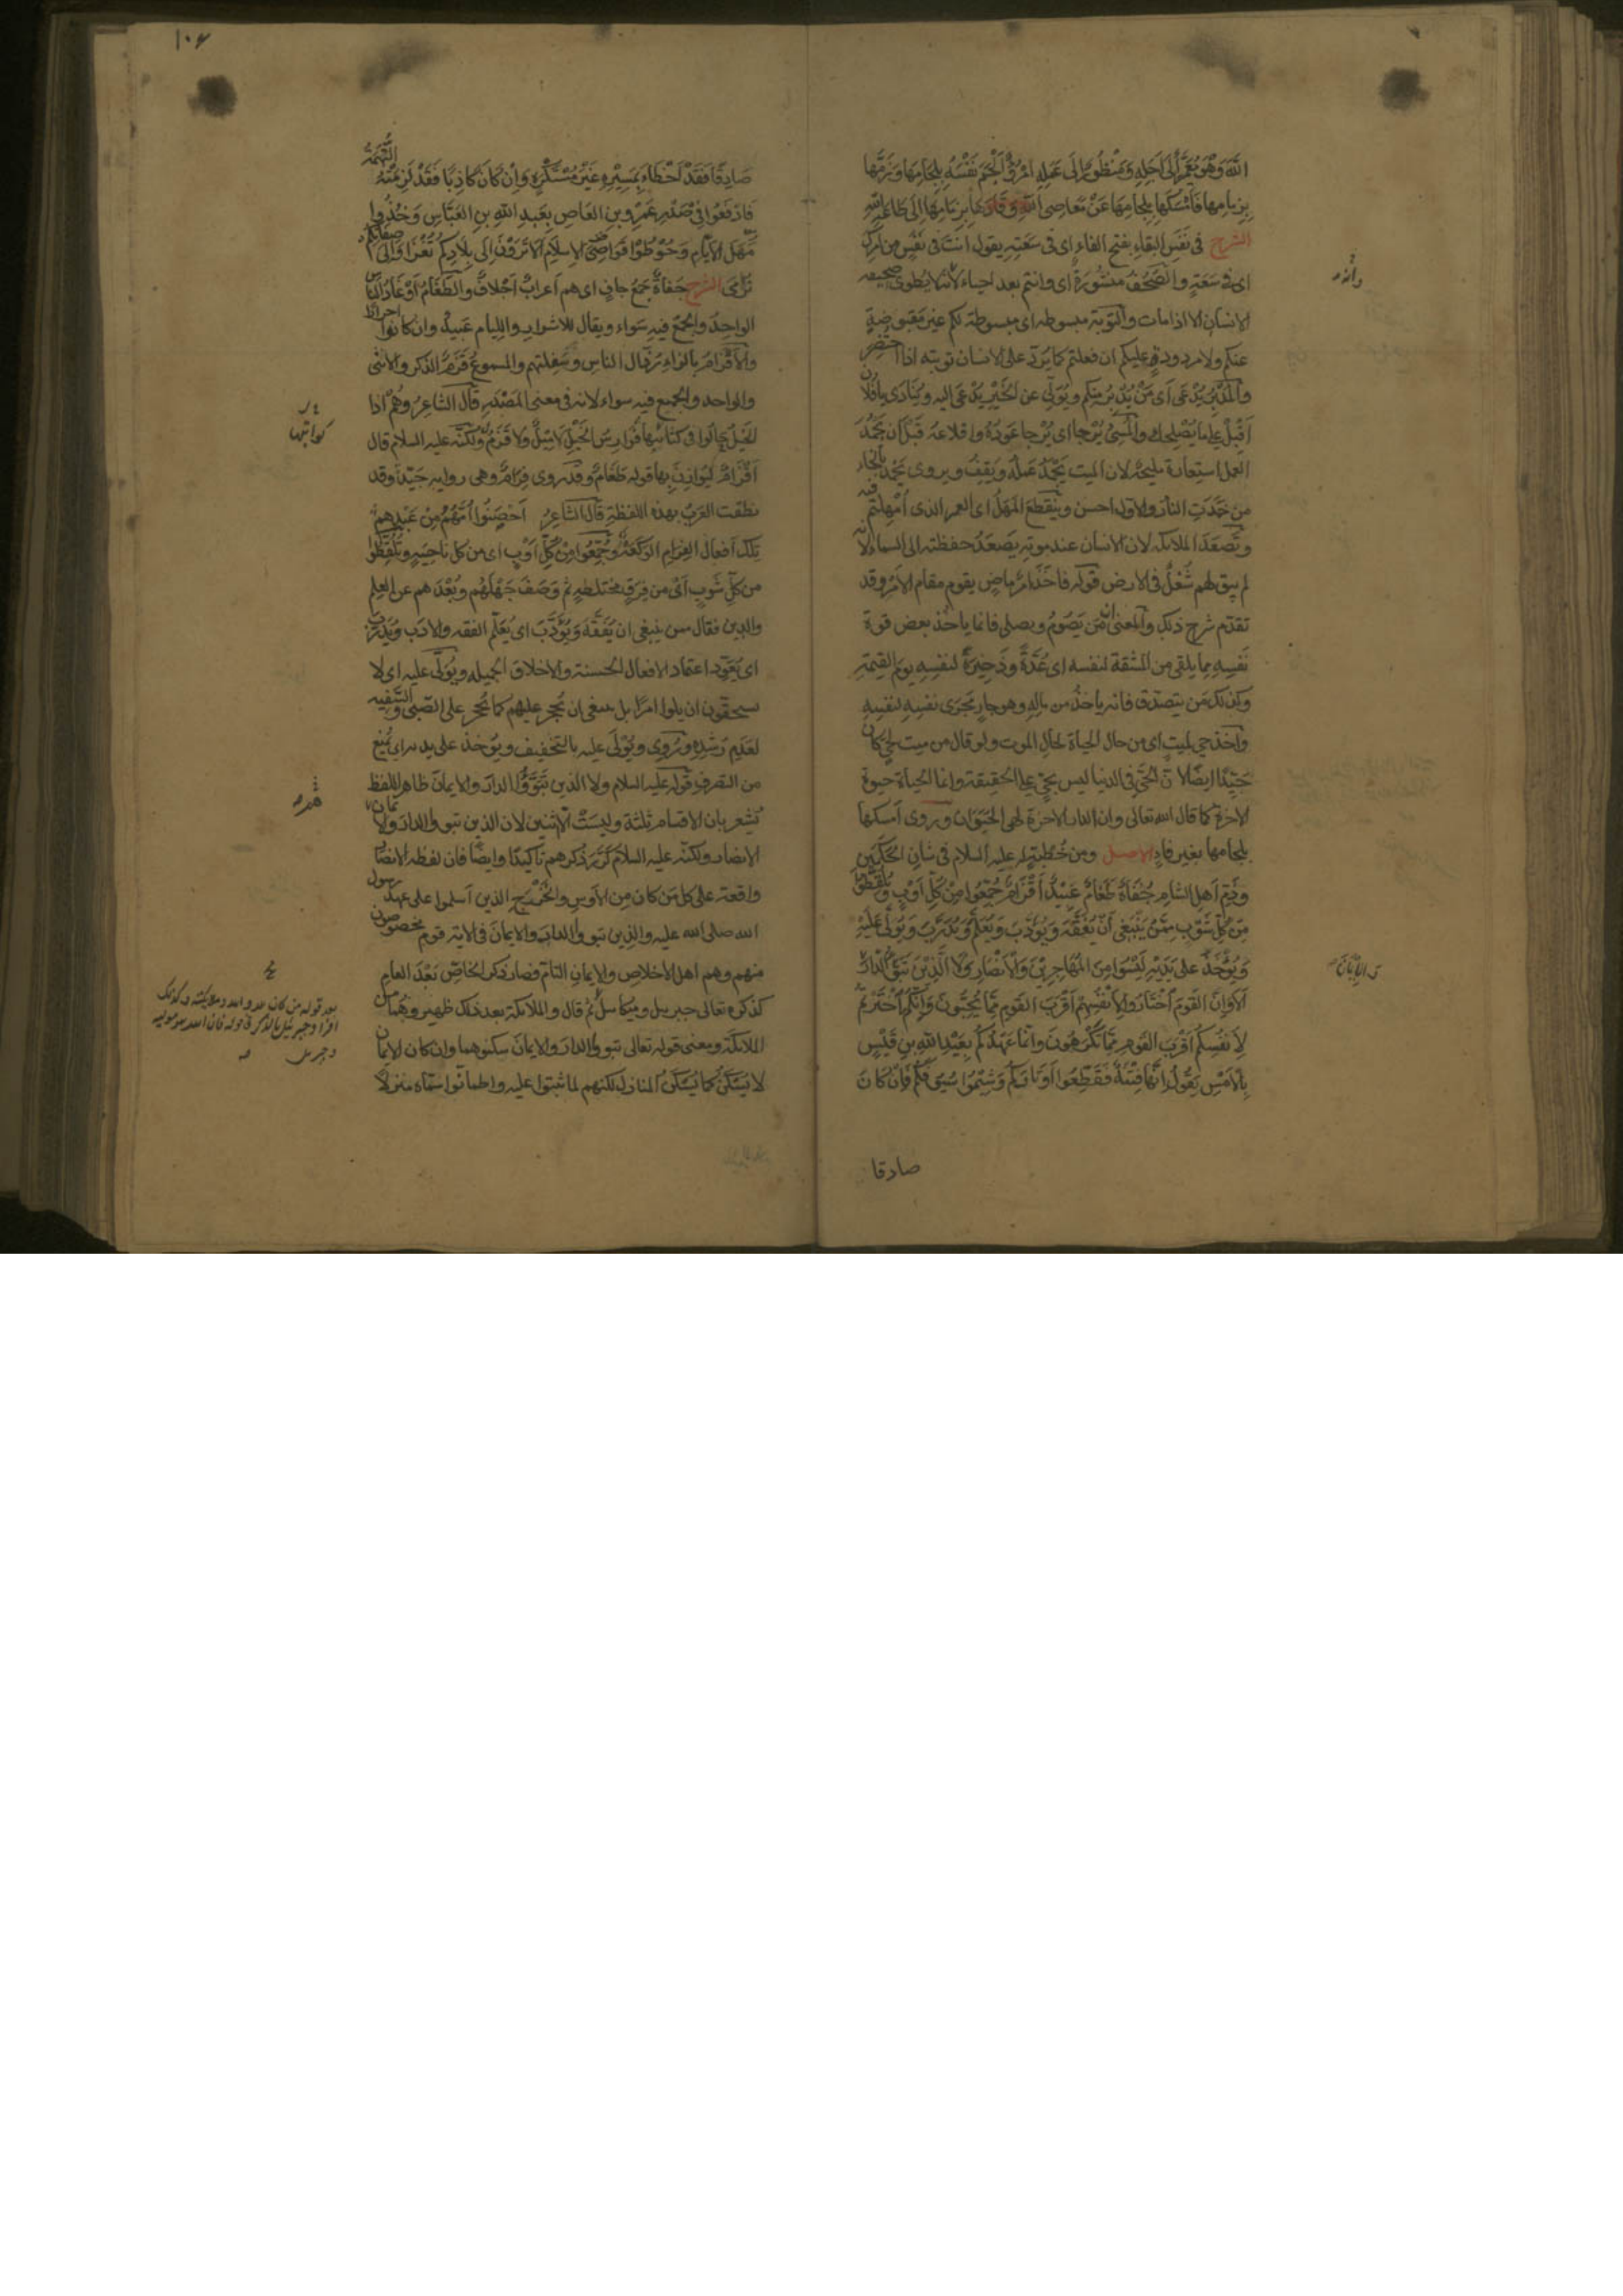 اللهَ وَهُوَ مُعَمَّرٌ إِلَى اَجَلِهِ وَمَنْظُورٌ اِلَى عَمَلِهِ امْرُؤٌ اَلْجَمَ نَفْسَهُ بِلِجَامِهَا وَزَمَّهَا
بِزِمَامِهَا فَاَمْسَكَهَا بِلِجَامِهَا عَنْ مَعَاصِى اللهِ وَقَادَهَا بِزِمَامِهَا اِلَى طَاعَةِ اللهِ
الشرح فى نَفَسِ البقاءِ بفتح الفاء اى فى سَعَتِهِ يقول انتَ فى نَفَسٍ من امرك
اى فى سَعَةٍ والصُّحُفُ منشُورَةٌ اى وانتم بعد احياء لانه لا يطوى صحيفه
الانسان الا اذا مات والتوبة مبسوطه اى مبسوطة لكم غير مقبوضةٍ
عنكم ولا مردودةٍ عليكم ان فعلتم كما يُرَدّ على الانسان توبته اذا احتضر
والمُدْبِرُ يُدْعَى اى مَنْ يُدْبِرُ منكم ويُوَلِّى عن الخَيْرِ يُدْعَى اليه ويُنَادَى يا فلان
اَقْبِلْ على ما يُصْلِحك والمُسِئُ يُرْجَا اى يُرْجا عَودُهُ واقلاعه قَبْلَ ان يَجْمُدَ
العمل استعارة مليحة لان الميت يَجْمُدُ عَمَلُهُ ويَقِفُ ويروى يَخْمُد بالخاء
من خَمَدَتِ النار والاول احسن ويَنْقَطِعَ المَهَلُ اى العمر الذى اُمْهِلتم فيه
وتَصْعَدَ الملائكه لان الانسان عند موته يَصعَدُ حفظته الى السماء لانه
لم يبق لهم شُغْلٌ فى الارض قوله فاَخَذَ امرٌ ماضٍ يقوم مقام الامر وقد
تقدّم شرح ذلك والمعنى ان مَن يَصُومُ ويصلى فانما ياخذ بعض قوة
نَفسِهِ مما يلقى من المشقة لنفسه اى عُدَّةً وذَخِيرَةً لنفسِهِ يوم القيمة
وكذلك مَن يتصدّق فانه ياخذُ من مالِهِ وهو جارٍ مَجْرَى نفسِهِ لنفسِهِ
واخذ حى لميتٍ اى من حال الحياة لحالِ الموت ولو قال من ميت لحى كان
جيّدًا ايضًا لان الحَىّ فى الدنيا ليس بحىّ على الحقيقة وانما الحياة حيوة
الاخرة كما قال الله تعالى وان الدار الاخرة لهى الحَيَوَان وروى اَمسكها
بلجامها بغير فاءٍ الاصل ومن خُطبةٍ له عليه السلام فى شان الحَكَمَين
وذَمِّ اَهلِ الشامِ جُفَاةٌ طَغَامٌ عَبِيدٌ اَقْزَامٌ جُمِّعُوا مِنْ كُلِّ اَوْبٍ وتُلُقِّطُوا
مِن كُلِّ شَوْبٍ مِمَّنْ يَنْبَغِى اَنْ يُفَقَّهَ وَيُؤَدَّبَ وَيُعَلَّمَ وَيُدَرَّبَ وَيُوَلَّى عَلَيْهِ
وَيُؤْخَذَ على يَدَيْهِ لَيْسُوا مِنَ المُهَاجِرِيْنَ وَالْاَنْصَارِ وَلَا الَّذِيْنَ تَبَوَّؤُا الدَّارَ
اَلَا وَاِنَّ القَوْمَ اخْتَارُوا لِاَنْفُسِهِمْ اَقْرَبَ القَوْمِ مِمَّا يُحِبُّونَ وَاِنَّكُمُ اخْتَرْتُمْ
لِاَنْفُسِكُمْ اَقْرَبَ القَوْمِ مِمَّا تَكْرَهُونَ وَاِنَّمَا عَهْدُكُمْ بِعَبْدِ اللهِ بنِ قَيْسٍ
بِالاَمْسِ يَقُولُ اِنَّهَا فِتْنَةٌ فَقَطِّعُوا اَوْتَارَكُمْ وَشِيْمُوا سُيُوفَكُمْ فَاِنْ كَانَ
صادقا
والايمان
١٠٦
صَادِقًا فَقَدْ اَخْطَاءَ بِمَسِيْرِهِ غَيْرَ مُسْتَكْرَهٍ وَاِنْ كَانَ كَاذِبًا فَقَدْ لَزِمَتْهُ التُّهْمَةُ
فَادْفَعُوا فِى صَدْرِ عَمْرِو بنِ العَاصِ بِعَبدِ اللهِ بنِ العَبَّاسِ وَخُذُوا
مَهَلَ الاَيَّامِ وَحُوْطُوْا قَوَاصِىَ الاِسلَامِ اَلَا تَرَوْنَ اِلَى بِلَادِكُمْ تُغْزَا وَاِلَى صفاتكم
تُرْمَى الشرح جُفاةٌ جَمعُ جافٍ اى هم اَعرابٌ اَجْلَافٌ والطَّغَامُ اَوْغَادُ الناس
الواحِدُ والجَمْعُ فيهِ سَواء ويقال للاشرارِ واللِّيام عَبِيدٌ وان كانوا احرارا
والاَقْزَامُ بالزاء رُذَال الناس وسَفِلتهم والمسموعُ قَزَمٌ الذكر والانثى
والواحد والجميع فيه سواء لانه فى معنى المَصْدَرِ قال الشاعِرُ وهُم اذا
الخيل جالوا فى كتائبها فَوارسُ الخَيْلِ لا مِيْلٌ ولا قَزَمُ ولكنّه عليه السلام قال
اَقْزَامٌ لِيُوازِنَ بها قوله طَغَامٌ وقد روى قِزَامٌ وهى رواية جَيّدة وقد
نطقت العربُ بهذه اللفظةِ قال الشاعِرُ اَحْصَنُوا اُمَّهُمُ مِنْ عَبْدِهِم
تِلْكَ اَفعالُ القِزامِ الوَكَعَهْ وجُمِّعُوا مِنْ كُلِّ اَوْبٍ اى من كل ناحيَةٍ وتُلُقِّطُوا
من كلِّ شَوبٍ اَىْ من فِرَقٍ مختلطةٍ ثم وَصَفَ جَهْلَهُم وبُعْدَهم عن العِلم
والدين فقال ممن ينبغى ان يُفَقَّهَ ويُؤَدَّبَ اى يُعَلَّمَ الفقه والادب ويُدَرَّبَ
اى يُعَوَّد اعتماد الافعال الحَسنة والاخلاق الجميله ويُوَلَّى عليه اى لا
يستحقون ان يلوا امرًا بل ينبغى ان يُحجر عليهم كما يُحجر على الصّبى والسّفيه
لعَدَمِ رُشدِهِ ورُوِى ويُوْلَى عليه بالتخفيف ويُؤخَذ على يديه اى يُمنَع
من التصرف قوله عليه السلام ولا الذين تَبَوَّؤُا الدار والايمان ظاهر اللفظ
يُشعر بان الاقسام ثلثة وليست الا اثنين لان الذين تبوؤا الدار والايمان
الانصار ولكنّه عليه السلام كَرَّرَ ذكرهم تاكيدًا وايضًا فان لفظه الانصار
واقعة على كل مَن كان مِن الاَوسِ والخَزرَجِ الذين اَسلموا على عهد رسول
الله صلى الله عليه والذين تبوؤا الدار والايمان فى الاية قوم مخصوصون
منهم وهم اهل الاخلاص والايمان التام فصار ذكر الخاصّ بَعْدَ العام
كذكره تعالى جبريل وميكائيل ثم قال والملائكة بعد ذلك ظهير وهما من
الملائكة ومعنى قوله تعالى تبوؤا الدار والايمان سكنوهما وان كان الايمان
لا يُسْكَنُ كما يُسْكَنُ المنازل لكنهم لما ثبتوا عليه واطمأنّوا سمّاه منزلًا
كواثبها
بعد قوله من كان عدوا لله وملائكته وكذلك
افراد جبرئيل بالذكر فى قوله فان الله هو موليه
وجبريل